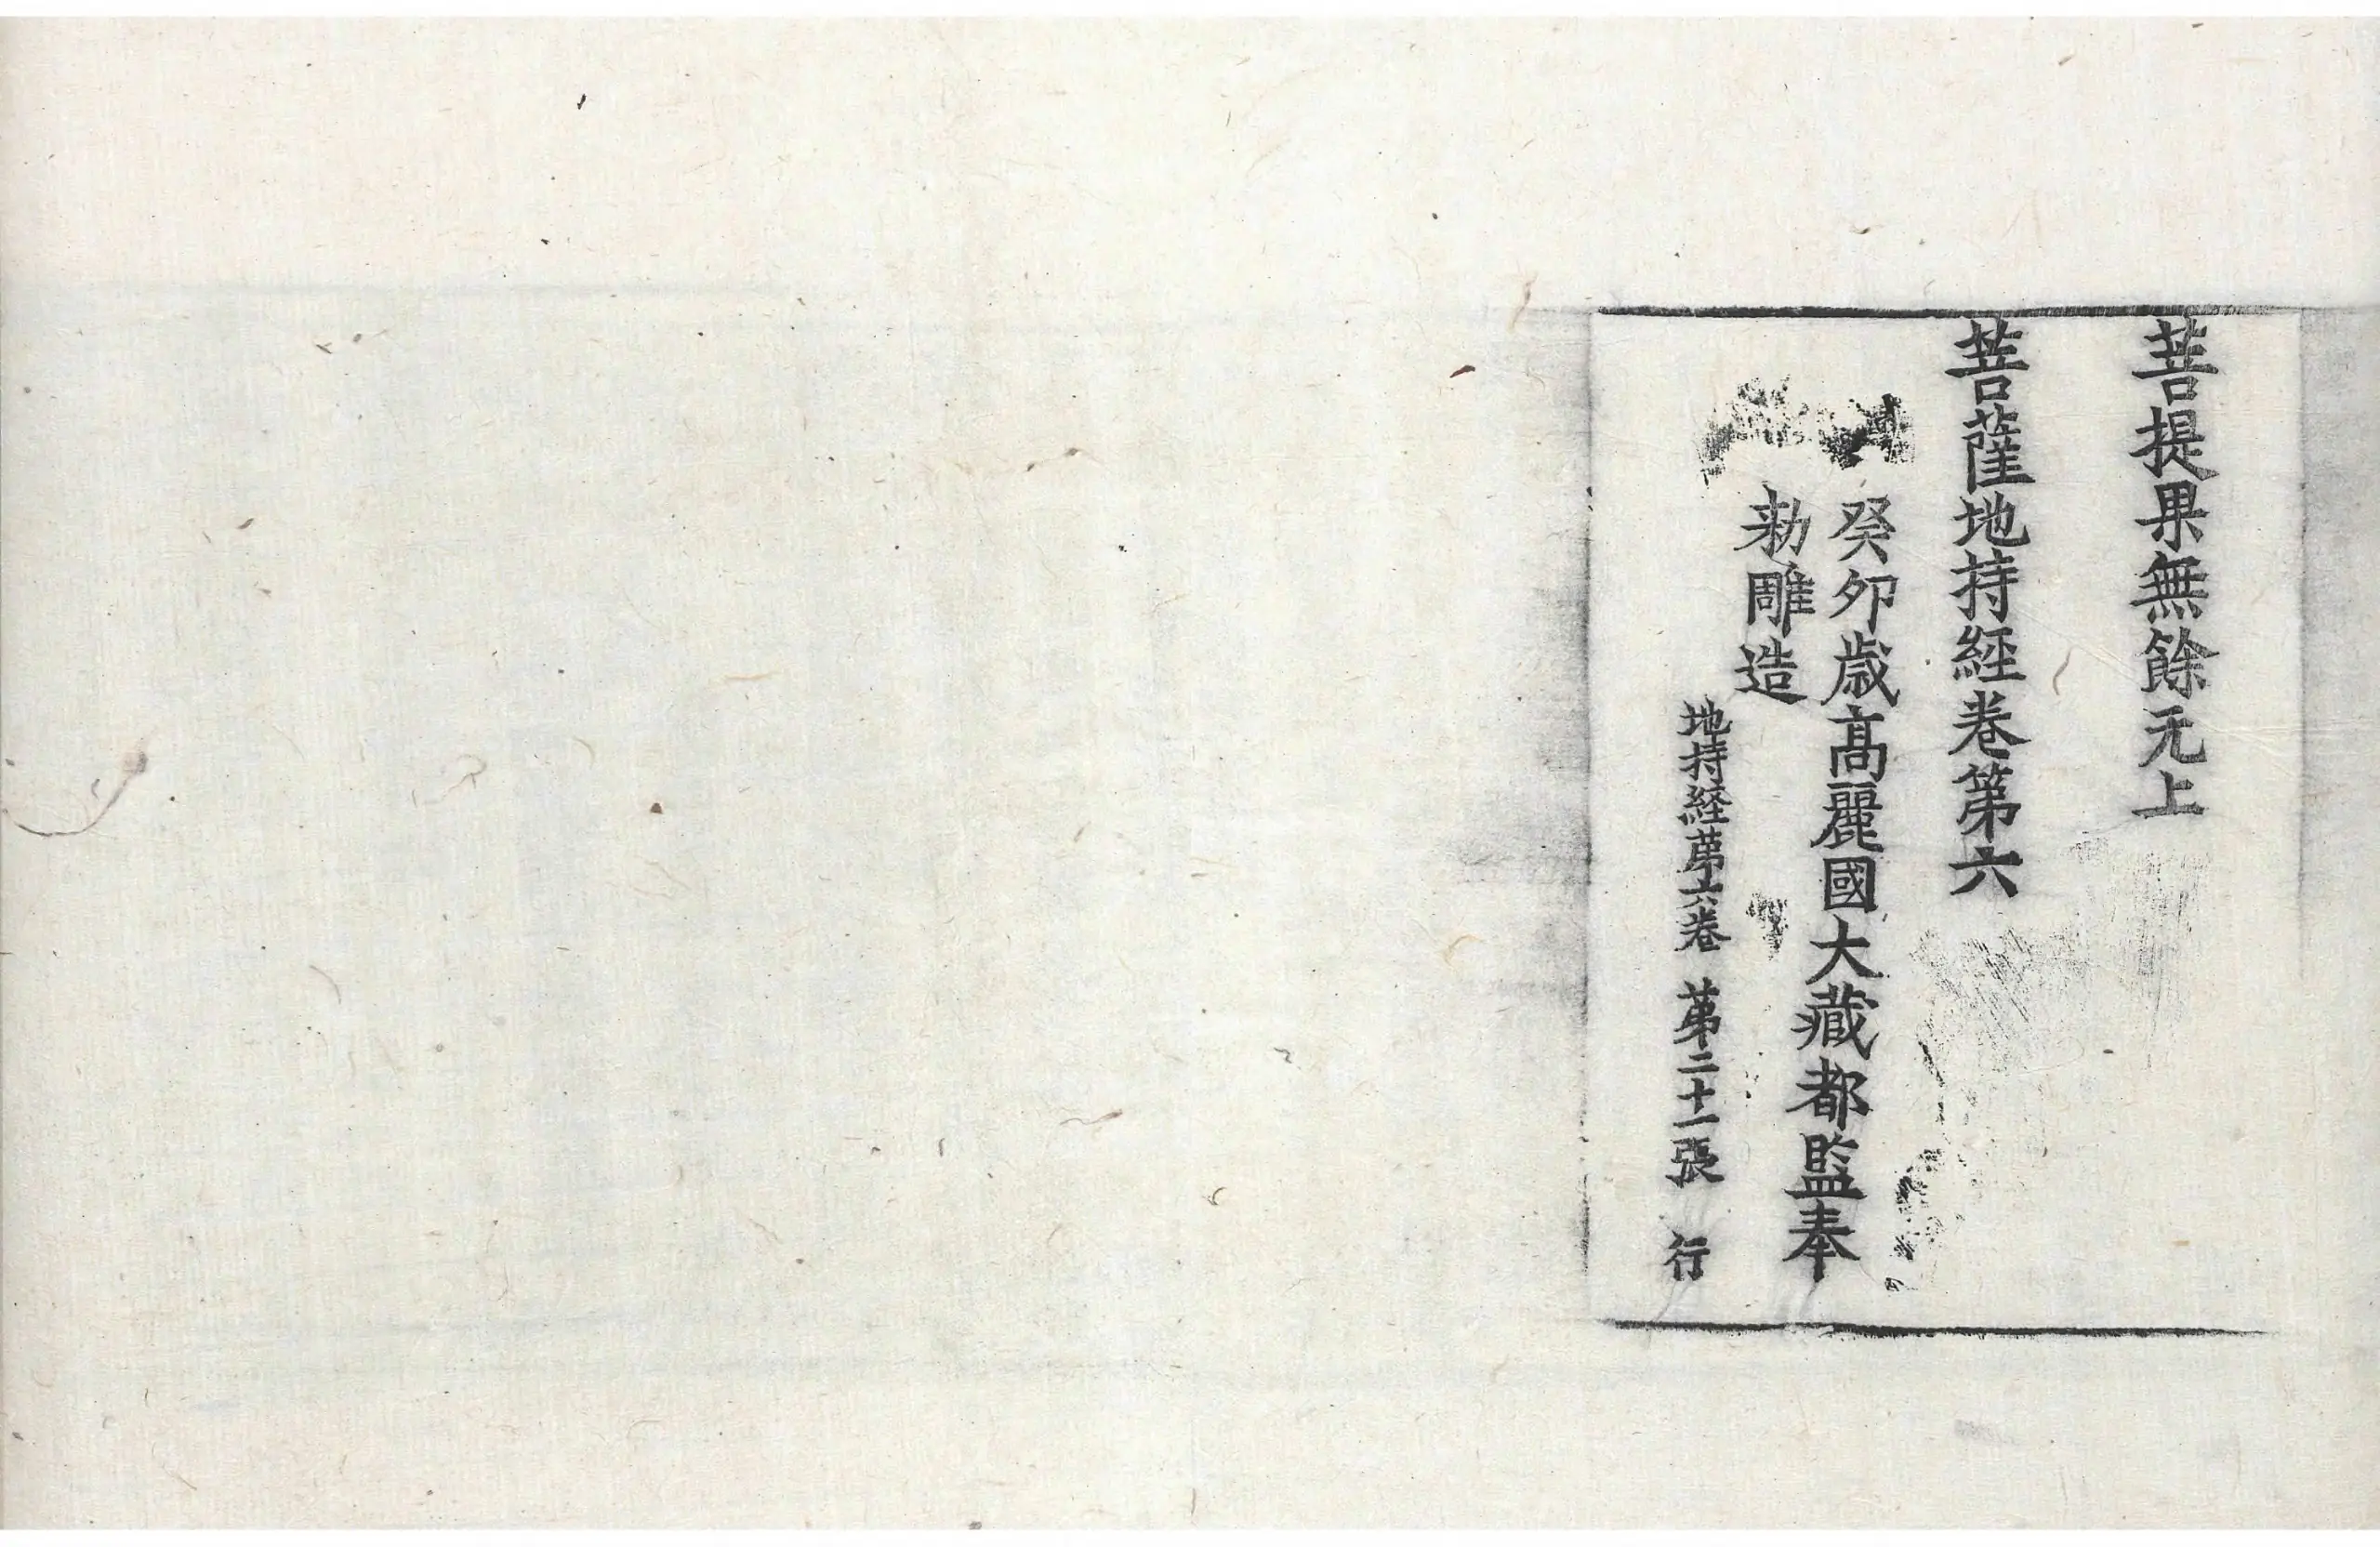 菩提果無餘无上
菩薩地持經卷第六
癸卯歳高麗國大藏都監奉
勑雕造
地持経苐六卷 苐二十一張 行